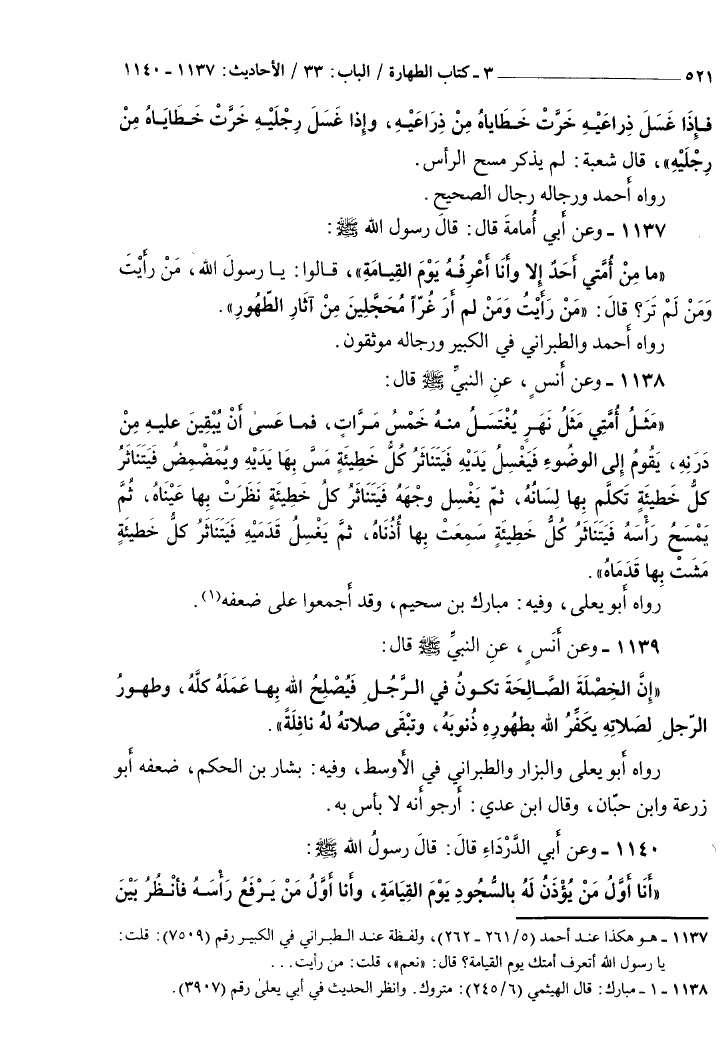 ٥٢١ ــــــــــــــــــــــــــــ ٣ ـ كتاب الطهارة / الباب: ٣٣ / الأحاديث: ١١٣٧ - ١١٤٠
فإِذَا غَسَلَ ذِراعَيْهِ خَرَّتْ خَطَاياهُ مِنْ ذِرَاعَيْهِ، وإِذَا غَسَلَ رِجْلَيْهِ خَرَّتْ خَطَايَاهُ مِنْ
رِجْلَيْهِ»، قال شعبة: لم يذكر مسح الرأس.
رواه أحمد ورجاله رجال الصحيح.
١١٣٧ ـ وعن أبي أُمامةَ قال: قالَ رسول الله ﷺ:
«ما مِنْ أُمَّتي أَحَدٌ إِلا وأَنَا أَعْرِفُهُ يَوْمَ القِيامَةِ»، قالوا: يا رسولَ الله، مَنْ رأَيْتَ
وَمَنْ لَمْ تَرَ؟ قالَ: «مَنْ رَأَيْتُ وَمَنْ لم أَرَ غُرّاً مُحَجَّلِينَ مِنْ آثَارِ الطّهُورِ».
رواه أحمد والطبراني في الكبير ورجاله موثقون.
١١٣٨ ـ وعن أَنسٍ، عنِ النبيِّ ﷺ قال:
«مَثَلُ أُمَّتِي مَثَلُ نَهَرٍ يُغْتَسَلُ منهُ خَمْسُ مَرَّاتٍ، فما عَسىٰ أَنْ يُبْقِينَ عليهِ مِنْ
دَرَنِهِ، يَقُومُ إِلى الوضُوءِ فَيَغْسِلُ يَدَيْهِ فَيَتَنَاثَرُ كُلُّ خَطِيئَةٍ مَسَّ بِهَا يَدَيْهِ ويُمَضْمِضُ فَيَتَنَاثَرُ
كلُّ خَطيئَةٍ تَكلَّم بِها لِسَانُهُ، ثمّ يَغْسِل وجْهَهُ فَيَتَنَاثَرُ كلُ خَطِيئَةٍ نَظَرَتْ بِها عَيْنَاهُ، ثُمَّ
يَمْسَحُ رَأْسَهُ فَيَتَنَاثَرُ كُلُّ خَطِيئَةٍ سَمِعَتْ بِها أُذُنَاهُ، ثمَّ يَغْسِلُ قَدَمَيْهِ فَيَتَنَاثَرُ كلُّ خَطيئَةٍ
مَشَتْ بِها قَدَمَاهُ».
رواه أبو يعلى، وفيه: مبارك بن سحيم، وقد أجمعوا على ضعفه(١).
١١٣٩ ـ وعن أَنَسٍ، عنِ النبيِّ ﷺ قال:
«إِنَّ الخِصْلَةَ الصَّالِحَةَ تكونُ في الرَّجُلِ فَيُصْلِحُ الله بِها عَمَلَهُ كلَّهُ، وطهورُ
الرّجلِ لصَلاتِهِ يكَفِّرُ الله بطهورِهِ ذُنوبَهُ، وتَبْقَى صلاتهُ لهُ نافِلَةً».
رواه أبو يعلى والبزار والطبراني في الأوسط، وفيه: بشار بن الحكم، ضعفه أبو
زرعة وابن حبّان، وقال ابن عدي: أرجو أنه لا بأس به.
١١٤٠ ـ وعن أبي الدَّرْدَاءِ قالَ: قالَ رسولُ الله ﷺ:
«أَنَا أَوَّلُ مَنْ يُؤْذَنُ لَهُ بالسُّجُودِ يَوْمَ القِيَامَةِ، وأنا أَوَّلُ مَنْ يَرْفَعُ رَأْسَهُ فأنْظُرُ بَيْنَ
١١٣٧ ـ هو هكذا عند أحمد (٥/ ٢٦١ ـ ٢٦٢)، ولفظة عند الطبراني في الكبير رقم (٧٥٠٩): قلت:
يا رسول الله أتعرف أمتك يوم القيامة؟ قال: «نعم»، قلت: من رأيت...
١١٣٨ ـ ١ ـ مبارك: قال الهيثمي (٦/ ٢٤٥): متروك. وانظر الحديث في أبي يعلىٰ رقم (٣٩٠٧).